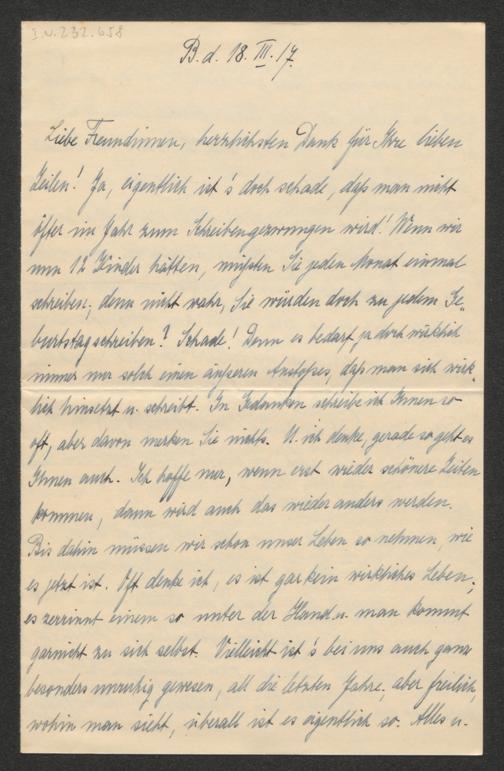 I.N.232.658
B.d. 18. III. 17.
Liebe Freundinnen, herzlichsten Dank für Ihre lieben
Zeilen! Ja, eigentlich ist's doch schade, daß man nicht
öfter im Jahr zum Schreiben gezwungen wird! Wenn wir
nun 12 Kinder hätten, müßten Sie jeden Monat einmal
schreiben; denn nicht wahr, Sie würden doch zu jedem Ge„
burtstag schreiben? Schade! Denn es bedarf ja doch wirklich
immer nur solch einen äußeren Anstoßes, daß man sich wirk„
lich hinsetzt u. schreibt. In Gedanken schreibe ich Ihnen so
oft, aber davon merken Sie nichts. U. ich denke, gerade so geht es
Ihnen auch. Ich hoffe nur, wenn erst wieder schönere Zeiten
kommen, dann wird auch das wieder anders werden.
Bis dahin müssen wir schon unser Leben so nehmen, wie
es jetzt ist. Oft denke ich, es ist gar kein wirkliches Leben;
es zerrinnt einem so unter der Hand u. man kommt
garnicht zu sich selbst. Vielleicht ist's bei uns auch ganz
besonders unruhig gewesen, all die letzten Jahre, aber freilich,
wohin man sieht, überall ist es eigentlich so. Alles u.